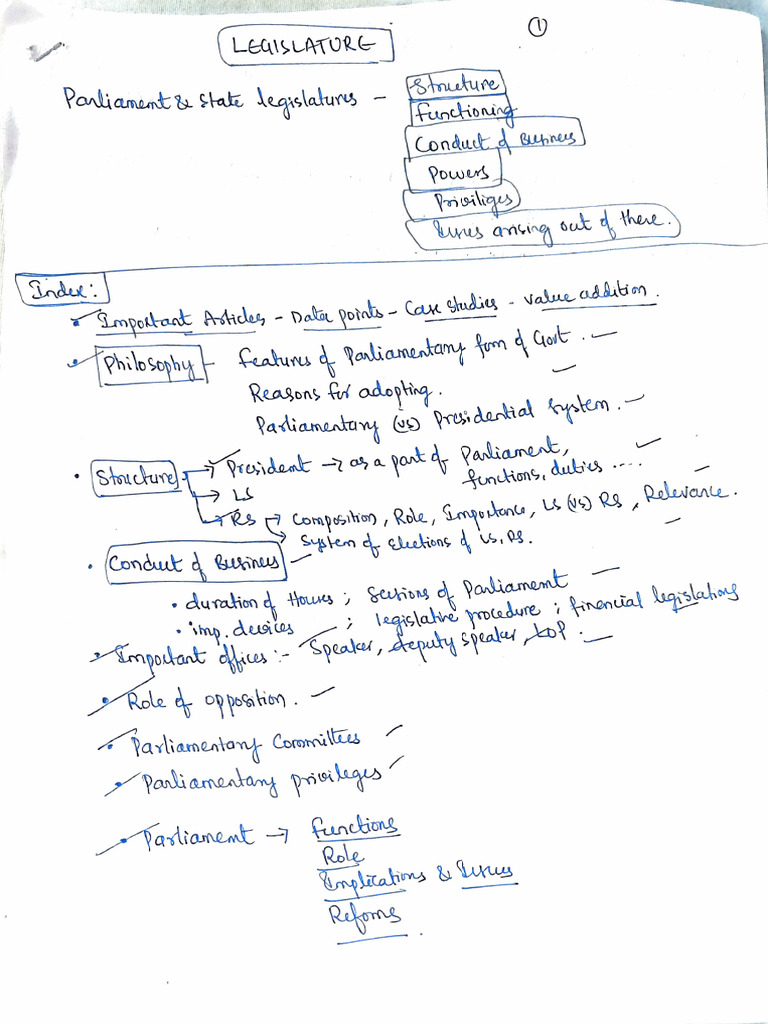 ①
LEGISLATURE
Parliament & State legislatures - Structure
Functioning
Conduct of Business
Powers
Priviliges
Issues arising out of there.
Index:
Important Articles - Data points - Case Studies - Value addition.
Philosophy - Features of Parliamentary form of Govt.
Reasons for adopting.
Parliamentary (vs) Presidential System.
• Structure → President → as a part of Parliament,
functions, duties ....
→ LS
→ RS → Composition, Role, Importance, LS (vs) RS, Relevance.
→ System of Elections of LS, RS.
• Conduct of Business
• duration of Houses ; Sessions of Parliament
• imp. devices ; legislative procedure ; financial legislations
• Important offices :- Speaker, deputy speaker, LOP.
• Role of opposition.
• Parliamentary Committees
• Parliamentary privileges
• Parliament → Functions
Role
Implications & Issues
Reforms